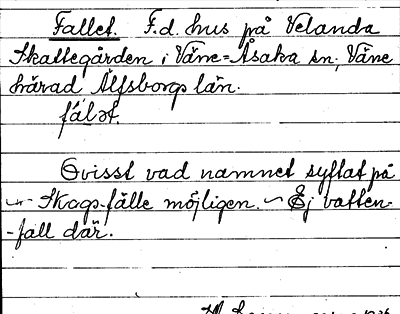 Fallet. F.d. hus på Velanda
Skattegården i Väne-Åsaka sn, Väne
härad Älfsborgs län.
fál̄ət.
Ovisst vad namnet syftat på
Skogs-fälle möjligen. Ej vatten-
-fall där.